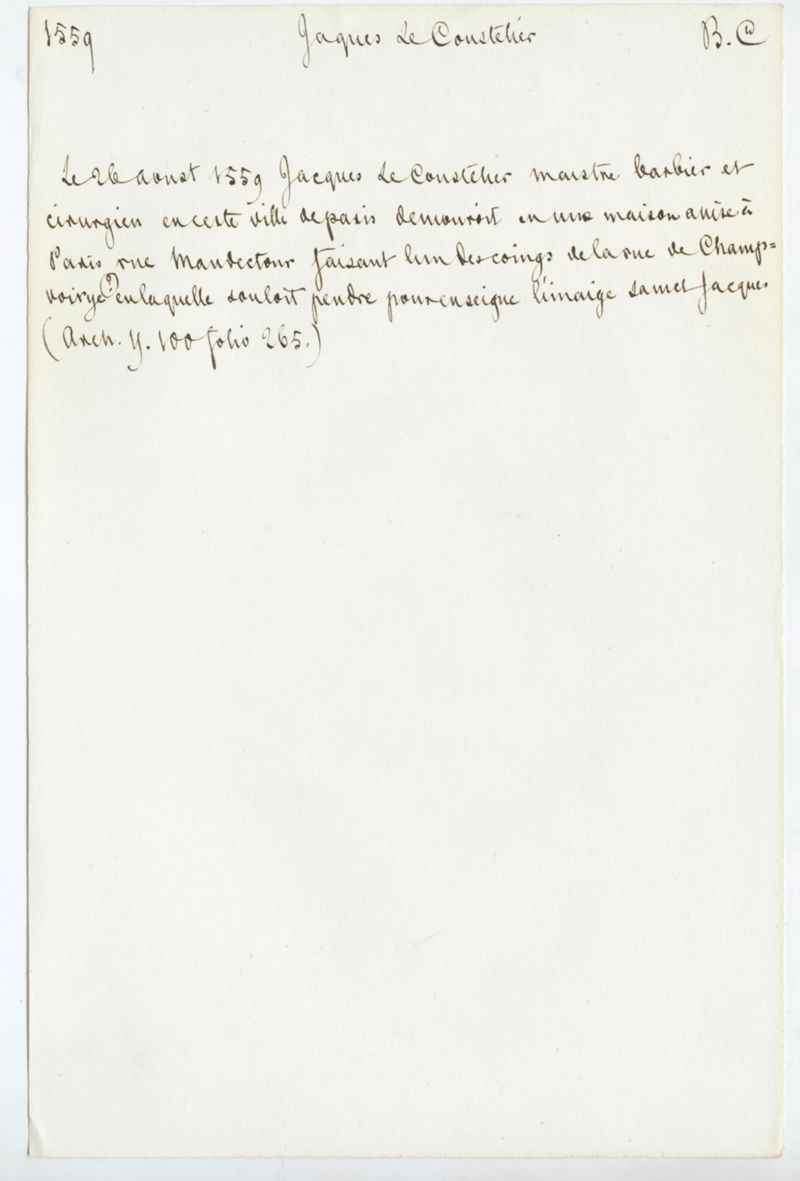 1559 Jaques Le Coustelier B. C^n
Le 26 aoust 1559 Jacques Le Coustelier maistre barbier et
cirurgien en ceste ville de paris demouroit en une maison assise à
Paris rue Maudectour faisant lun des coings de la rue de Champ=
voirye(?) en laquelle souloit pendre pour enseigne l'imaige sainct Jacques
(Arch. Y. 100 folio 265.)